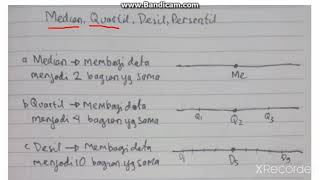 www.Bandicam.com
Median, Quartil, Desil, Persentil
a Median → Membagi data
menjadi 2 bagian yg sama
Me
b Quartil → Membagi data
menjadi 4 bagian yg sama
Q1 Q2 Q3
c Desil → Membagi data
menjadi 10 bagian yg sama
D5 D9
XRECORDER